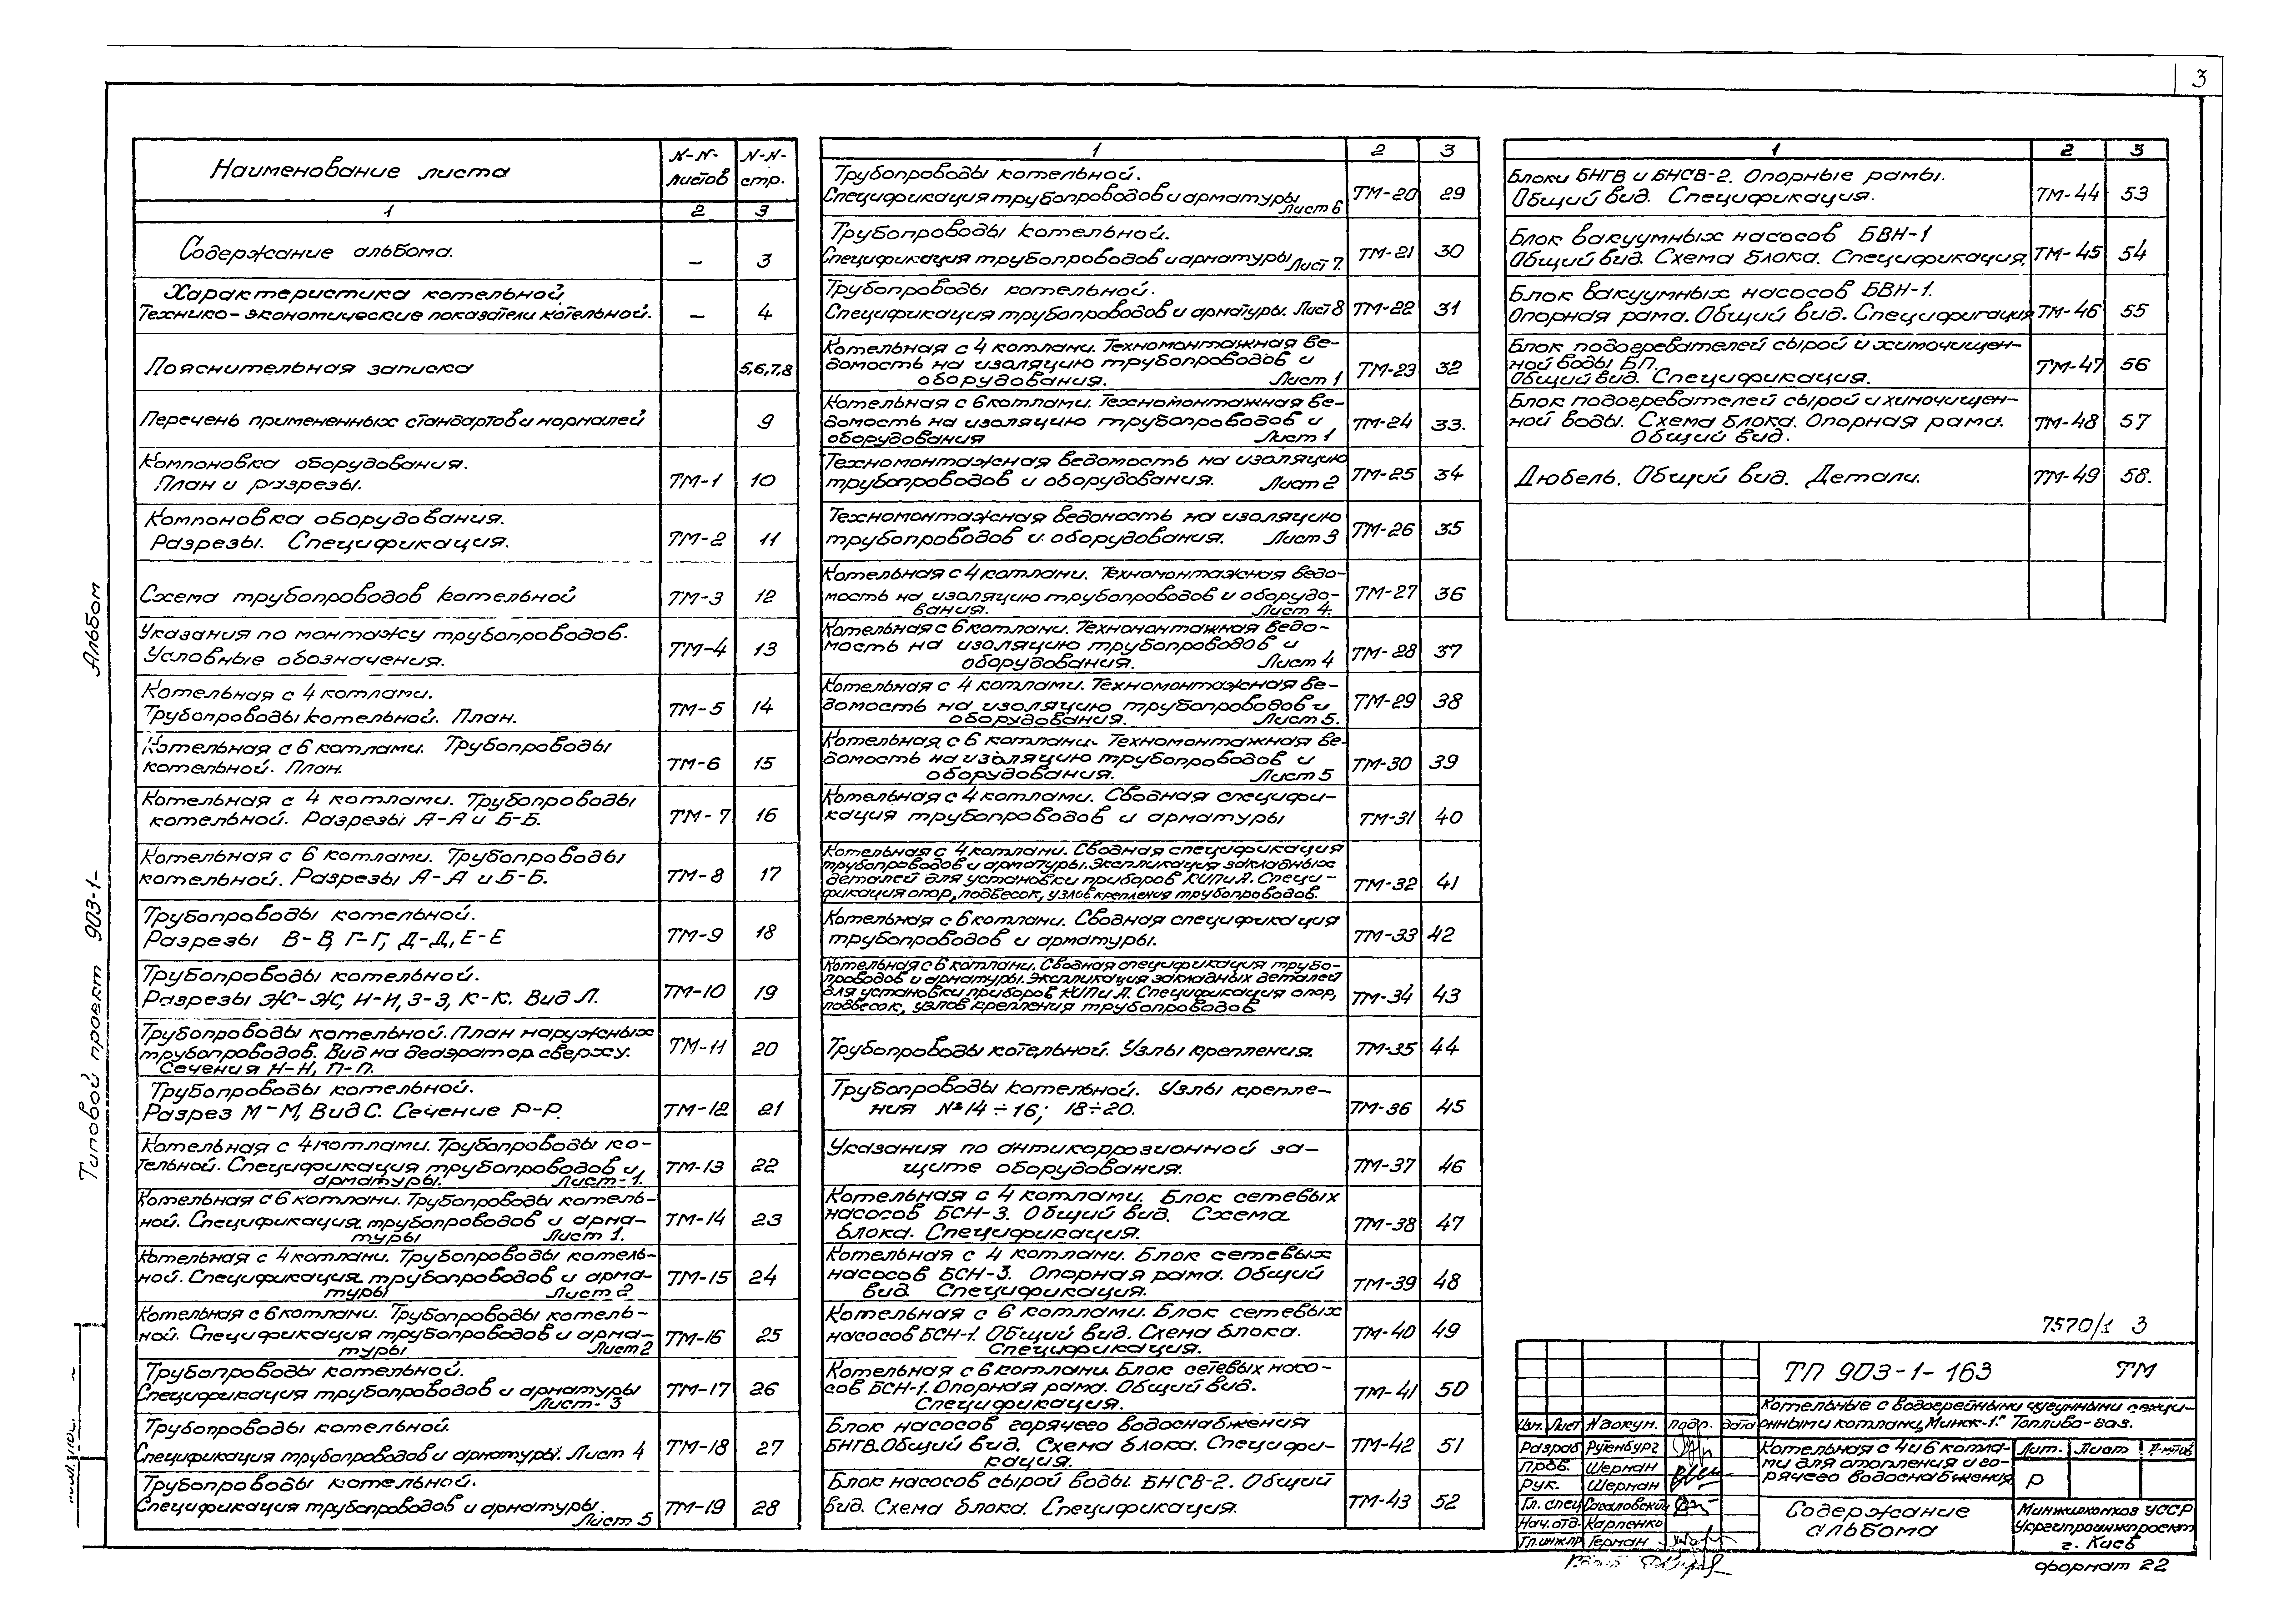 3
Наименование листа
N-N- листов
N-N- стр.
1 2 3
Содержание альбома. – 3
Характеристика котельной,
Технико-экономические показатели котельной. – 4
Пояснительная записка 5,6,7,8
Перечень примененных стандартов и нормалей 9
Компоновка оборудования.
План и разрезы. ТМ-1 10
Компоновка оборудования.
Разрезы. Спецификация. ТМ-2 11
Схема трубопроводов котельной ТМ-3 12
Указания по монтажу трубопроводов.
Условные обозначения. ТМ-4 13
Котельная с 4 котлами.
Трубопроводы котельной. План. ТМ-5 14
Котельная с 6 котлами. Трубопроводы
котельной. План. ТМ-6 15
Котельная с 4 котлами. Трубопроводы
котельной. Разрезы А-А и Б-Б. ТМ-7 16
Котельная с 6 котлами. Трубопроводы
котельной. Разрезы А-А и Б-Б. ТМ-8 17
Трубопроводы котельной.
Разрезы В-В, Г-Г, Д-Д, Е-Е ТМ-9 18
Трубопроводы котельной.
Разрезы Ж-Ж, И-И, З-З, К-К. Вид Л. ТМ-10 19
Трубопроводы котельной. План наружных
трубопроводов. Вид на деаэратор сверху.
Сечения Н-Н, П-П. ТМ-11 20
Трубопроводы котельной.
Разрез М-М, Вид С. Сечение Р-Р. ТМ-12 21
Котельная с 4 котлами. Трубопроводы ко-
тельной. Спецификация трубопроводов и
арматуры. Лист-1. ТМ-13 22
Котельная с 6 котлами. Трубопроводы котель-
ной. Спецификация трубопроводов и арма-
туры Лист 1. ТМ-14 23
Котельная с 4 котлами. Трубопроводы котель-
ной. Спецификация трубопроводов и арма-
туры Лист 2 ТМ-15 24
Котельная с 6 котлами. Трубопроводы котель-
ной. Спецификация трубопроводов и арма-
туры Лист 2 ТМ-16 25
Трубопроводы котельной.
Спецификация трубопроводов и арматуры
Лист-3 ТМ-17 26
Трубопроводы котельной.
Спецификация трубопроводов и арматуры. Лист 4 ТМ-18 27
Трубопроводы котельной.
Спецификация трубопроводов и арматуры.
Лист 5 ТМ-19 28
1 2 3
Трубопроводы котельной.
Спецификация трубопроводов и арматуры
Лист 6 ТМ-20 29
Трубопроводы котельной.
Спецификация трубопроводов и арматуры Лист 7. ТМ-21 30
Трубопроводы котельной.
Спецификация трубопроводов и арматуры. Лист 8 ТМ-22 31
Котельная с 4 котлами. Техмонтажная ве-
домость на изоляцию трубопроводов и
оборудования. Лист 1 ТМ-23 32
Котельная с 6 котлами. Техмонтажная ве-
домость на изоляцию трубопроводов и
оборудования Лист 1 ТМ-24 33.
Техномонтажная ведомость на изоляцию
трубопроводов и оборудования. Лист 2 ТМ-25 34
Техномонтажная ведомость на изоляцию
трубопроводов и оборудования. Лист 3 ТМ-26 35
Котельная с 4 котлами. Техномонтажная ведо-
мость на изоляцию трубопроводов и оборудо-
вания. Лист 4. ТМ-27 36
Котельная с 6 котлами. Техномонтажная ведо-
мость на изоляцию трубопроводов и
оборудования. Лист 4 ТМ-28 37
Котельная с 4 котлами. Техномонтажная ве-
домость на изоляцию трубопроводов и
оборудования. Лист 5. ТМ-29 38
Котельная с 6 котлами. Техномонтажная ве-
домость на изоляцию трубопроводов и
оборудования. Лист 5 ТМ-30 39
Котельная с 4 котлами. Сводная специфи-
кация трубопроводов и арматуры ТМ-31 40
Котельная с 4 котлами. Сводная спецификация
трубопроводов и арматуры. Экспликация закладных
деталей для установки приборов КИПиА. Специ-
фикация опор, подвесок, узлов крепления трубопроводов. ТМ-32 41
Котельная с 6 котлами. Сводная спецификация
трубопроводов и арматуры. ТМ-33 42
Котельная с 6 котлами. Сводная спецификация трубо-
проводов и арматуры. Экспликация закладных деталей
для установки приборов КИПиА. Спецификация опор,
подвесок, узлов крепления трубопроводов ТМ-34 43
Трубопроводы котельной. Узлы крепления. ТМ-35 44
Трубопроводы котельной. Узлы крепле-
ния №14÷16; 18÷20. ТМ-36 45
Указания по антикоррозионной за-
щите оборудования. ТМ-37 46
Котельная с 4 котлами. Блок сетевых
насосов БСН-3. Общий вид. Схема
блока. Спецификация. ТМ-38 47
Котельная с 4 котлами. Блок сетевых
насосов БСН-3. Опорная рама. Общий
вид. Спецификация. ТМ-39 48
Котельная с 6 котлами. Блок сетевых
насосов БСН-1. Общий вид. Схема блока.
Спецификация. ТМ-40 49
Котельная с 6 котлами. Блок сетевых насо-
сов БСН-1. Опорная рама. Общий вид.
Спецификация. ТМ-41 50
Блок насосов горячего водоснабжения
БНГВ. Общий вид. Схема блока. Специфи-
кация. ТМ-42 51
Блок насосов сырой воды БНСВ-2. Общий
вид. Схема блока. Спецификация. ТМ-43 52
1 2 3
Блоки БНГВ и БНСВ-2. Опорные рамы.
Общий вид. Спецификация. ТМ-44 53
Блок вакуумных насосов БВН-1
Общий вид. Схема блока. Спецификация. ТМ-45 54
Блок вакуумных насосов БВН-1.
Опорная рама. Общий вид. Спецификация ТМ-46 55
Блок подогревателей сырой и химочищен-
ной воды БП.
Общий вид. Спецификация. ТМ-47 56
Блок подогревателей сырой и химочищен-
ной воды. Схема блока. Опорная рама.
Общий вид. ТМ-48 57
Дюбель. Общий вид. Детали. ТМ-49 58.
Типовой проект 903-1- Альбом
7570/1 3
ТП 903-1-163 ТМ
Котельные с водогрейными чугунными секци-
онными котлами „Минск-1". Топливо-газ.
Изм. Лист N докум. подр. дата
Разраб Рутенбург
Пров. Шерман
Рук. Шерман
Гл. спец
Нач. отд. Карпенко
Гл. инж.пр Герман
Котельная с 4 и 6 котла-
ми для отопления и го-
рячего водоснабжения
Лит. Лист
Р
Содержание
альбома
Минжилкомхоз УССР
Укргипроинжпроект
г. Киев
формат 22